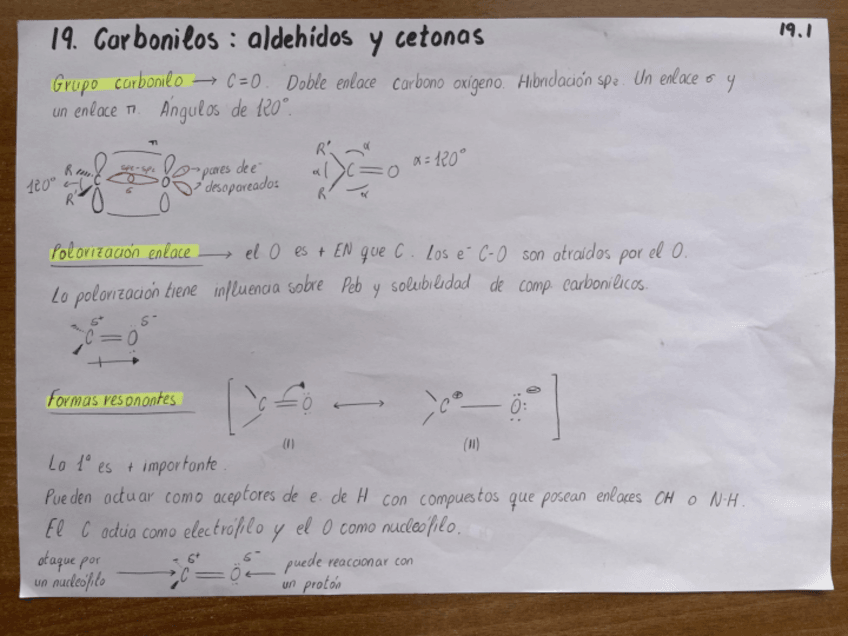 19. Carbonilos : aldehídos y cetonas
19.1
Grupo carbonilo → C=O. Doble enlace carbono oxígeno. Hibridación sp2. Un enlace σ y
un enlace π. Ángulos de 120°.
π
R
R'
120°
C
sp2-sp2
σ
O
pares de e-
desapareados
R'
R
α
C=O
α
α
α=120°
Polarización enlace → el O es + EN que C. Los e- C-O son atraídos por el O.
La polarización tiene influencia sobre Peb y solubilidad de comp. carbonílicos.
δ+ δ-
C=O
Formas resonantes
[ C=O ↔ C⊕—O⊖ ]
(I) (II)
La 1ª es + importante.
Pueden actuar como aceptores de e. de H con compuestos que posean enlaces OH o N-H.
El C actúa como electrófilo y el O como nucleófilo.
ataque por
un nucleófilo
δ+ δ-
C=O
puede reaccionar con
un protón